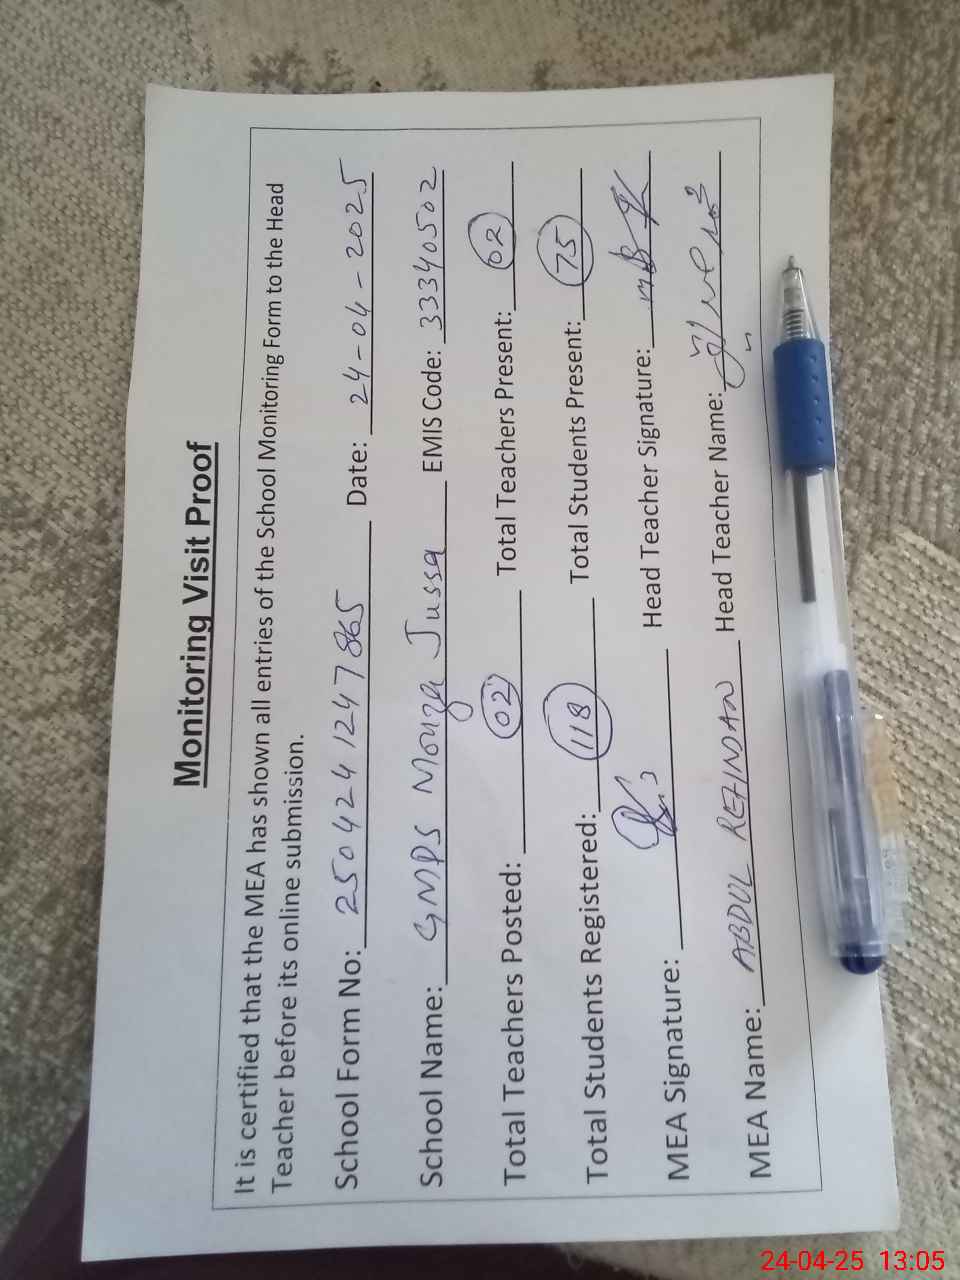 Monitoring Visit Proof
It is certified that the MEA has shown all entries of the School Monitoring Form to the Head
Teacher before its online submission.
School Form No: 2504241247865 Date: 24-04-2025
School Name: GMPS Mouza Jussa EMIS Code: 33340502
Total Teachers Posted: 02 Total Teachers Present: 02
Total Students Registered: 118 Total Students Present: 75
MEA Signature: Head Teacher Signature:
MEA Name: ABDUL REHMAN Head Teacher Name:
24-04-25 13:05